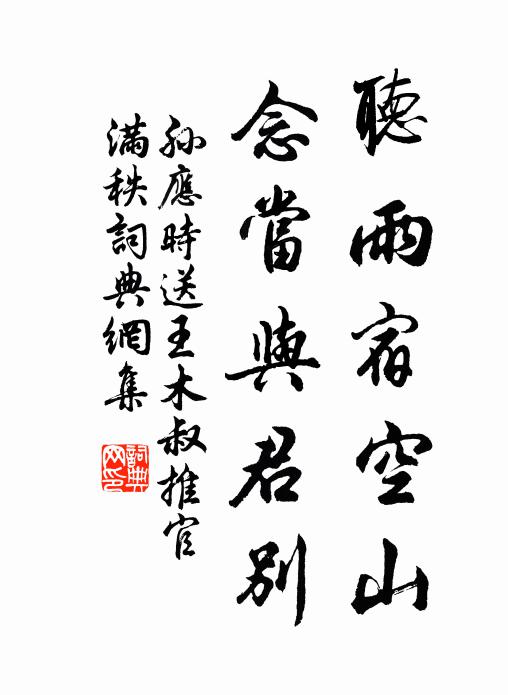 聽雨宿空山
念當與君別
孫應時送王木叔推官
滿秩詞典網集
詞典網印